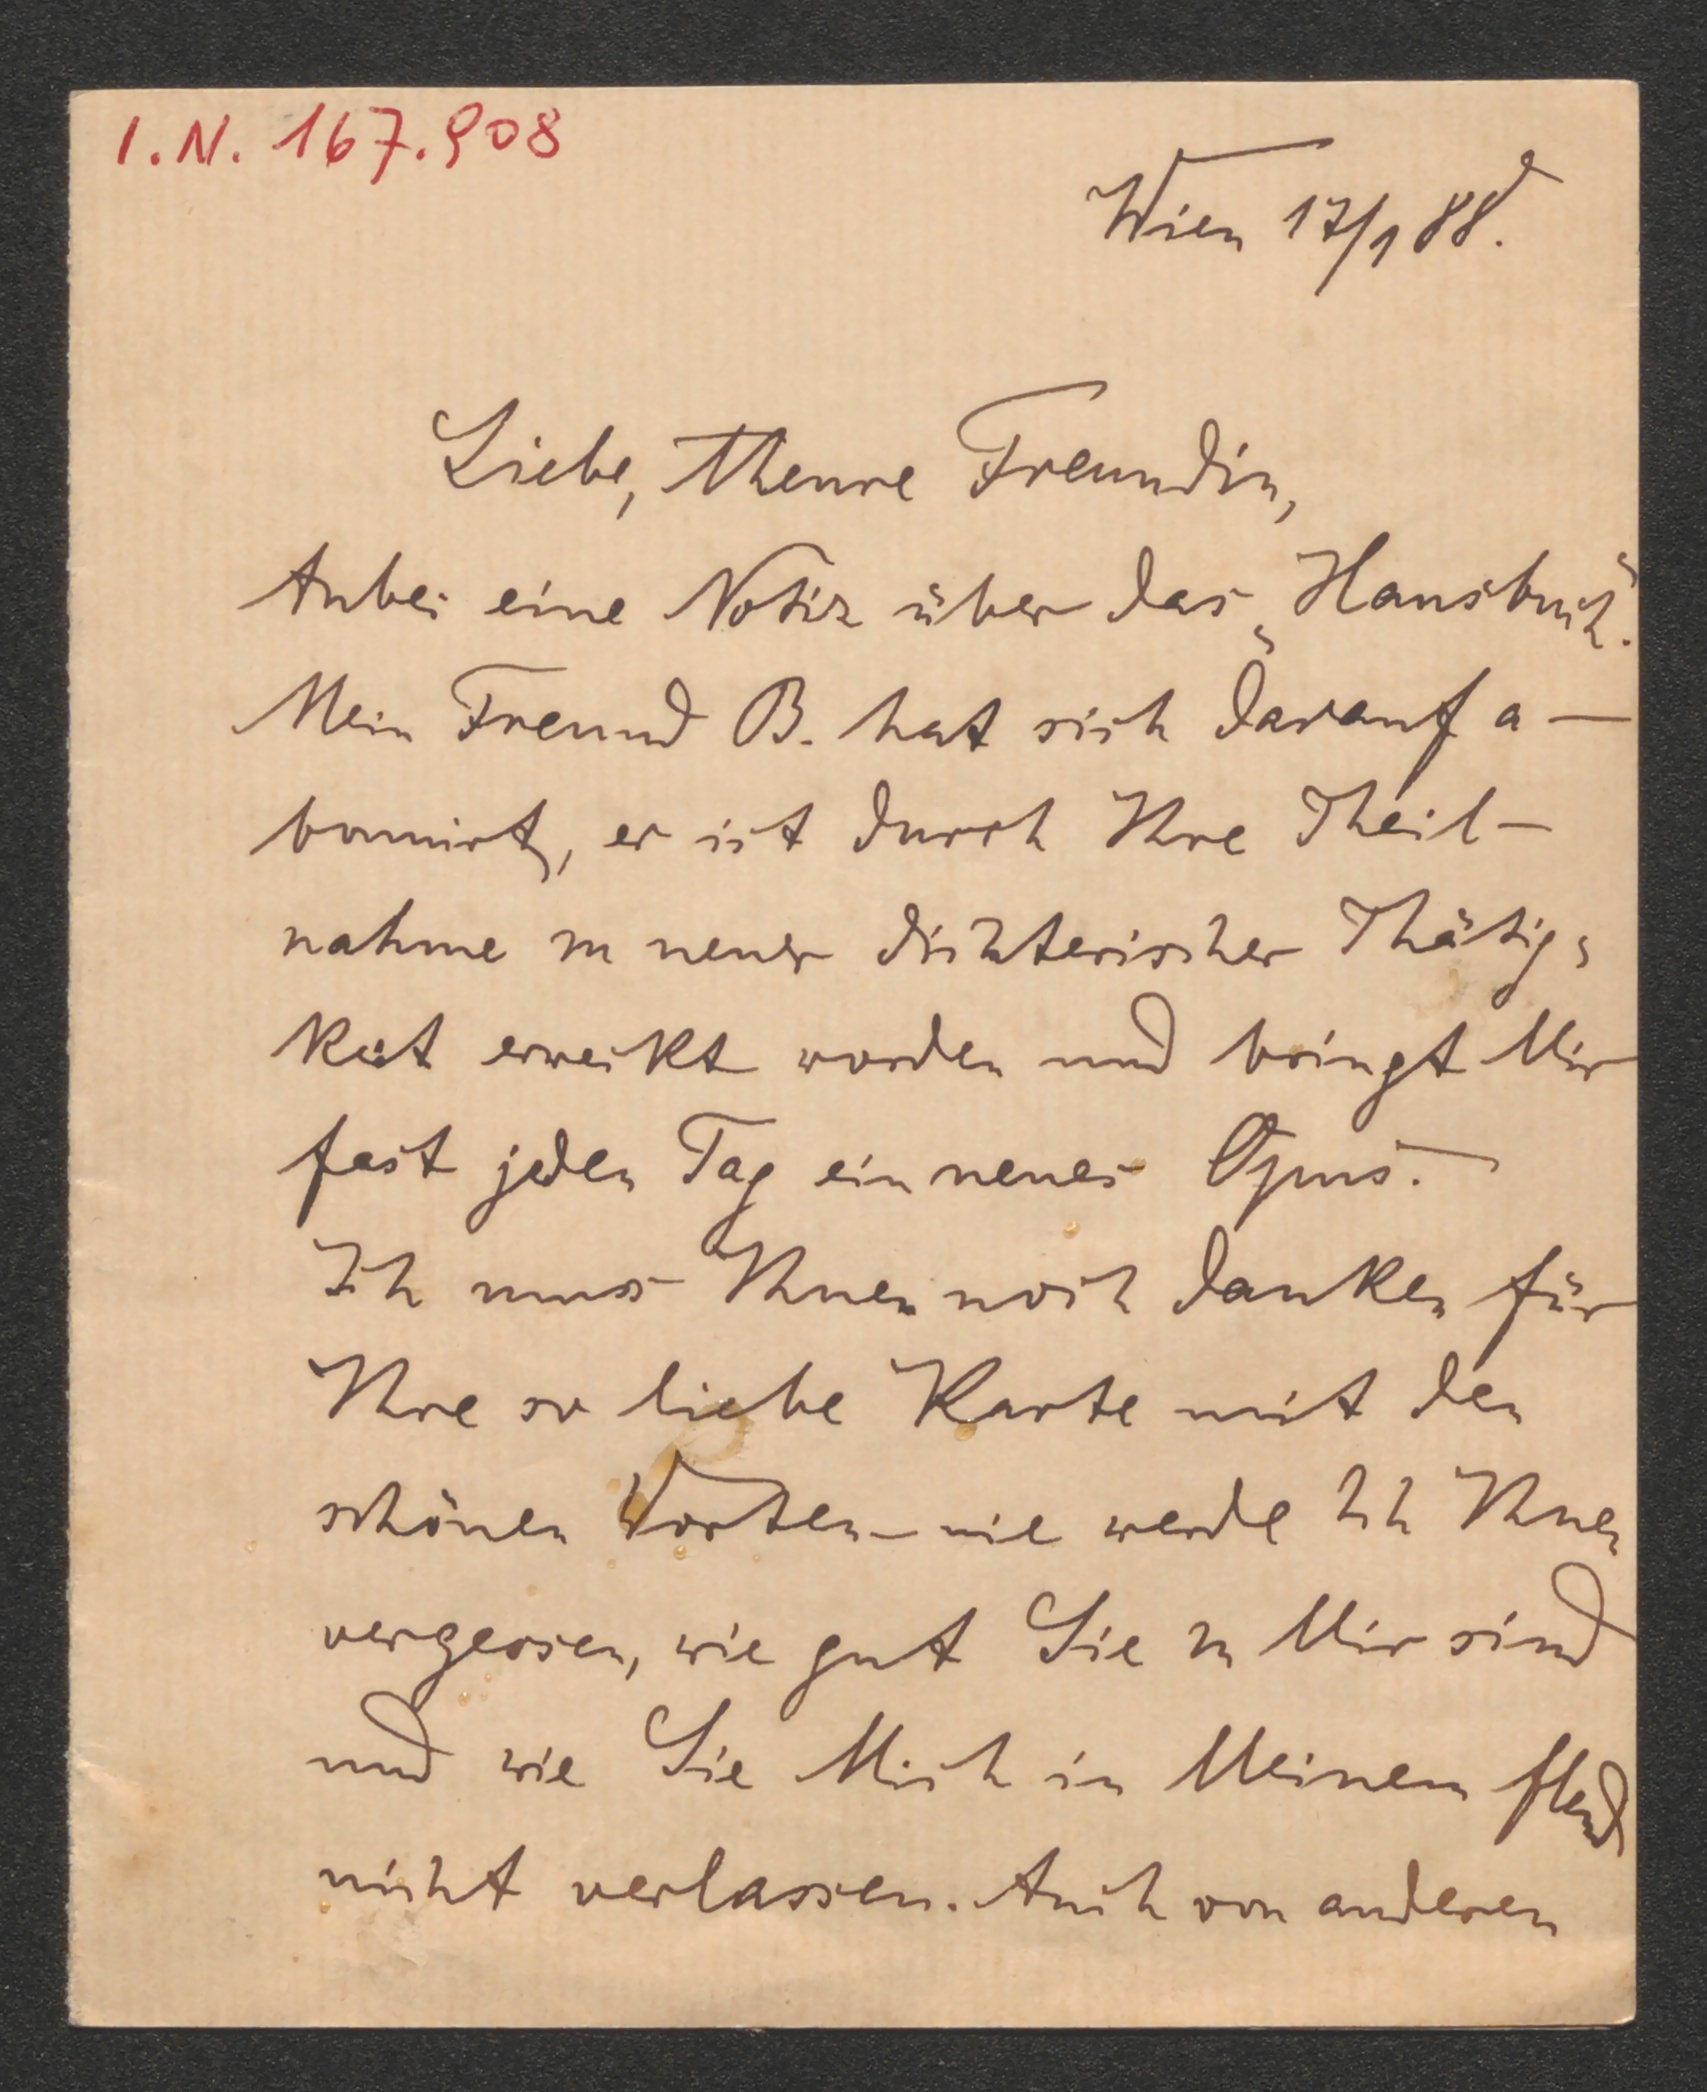 I.N. 167.908
Wien 17/1 88.
Liebe, theure Freundin,
Anbei eine Notiz über das „Hausbuch“.
Mein Freund B. hat sich darauf a-
bonnirt, er ist durch Ihre Theil-
nahme zu neuer dichterischer Thätig-
keit erweckt worden und bringt Mir
fast jeden Tag ein neues Opus.
Ich muss Ihnen noch danken für
Ihre so liebe Karte mit den
schönen Worten – nie werde Ich Ihnen
vergessen, wie gut Sie zu Mir sind
und wie Sie Mich in Meinem Elend
nicht verlassen. Auch von anderen